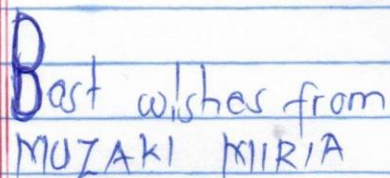 Best wishes from
MUZAKI MIRIA